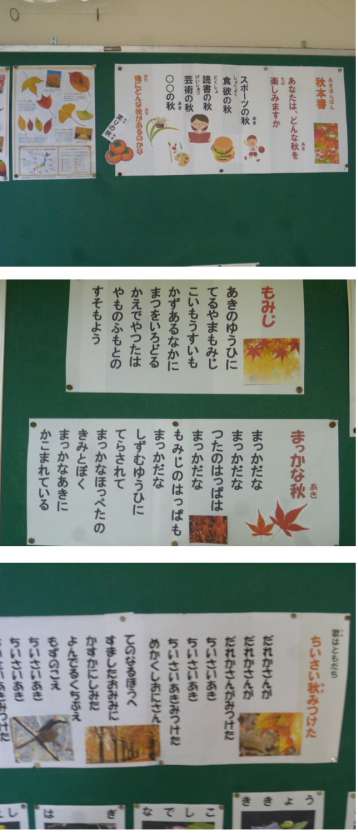 秋本番
あなたは、どんな秋を
楽しみますか
スポーツの秋
食欲の秋
読書の秋
芸術の秋
〇〇の秋
もみじ
あきのゆうひに
てるやまもみじ
こいもうすいも
かずあるなかに
まつをいろどる
かえでやつたは
やまのふもとの
すそもよう
まっかな秋
まっかだな
まっかだな
つたのはっぱは
まっかだな
もみじのはっぱも
まっかだな
しずむゆうひに
てらされて
まっかなほっぺたの
きみとぼく
まっかなあきに
かこまれている
歌はともだち
ちいさい秋みつけた
だれかさんが
だれかさんが
だれかさんがみつけた
ちいさいあき
ちいさいあき
ちいさいあきみつけた
めかくしおにさん
てのなるほうへ
すましたおみみに
かすかにしみた
よんでるくちぶえ
もずのこえ
ちいさいあき
ちいさいあき
ちいさいあきみつけた
ききょう
なでしこ
はぎ